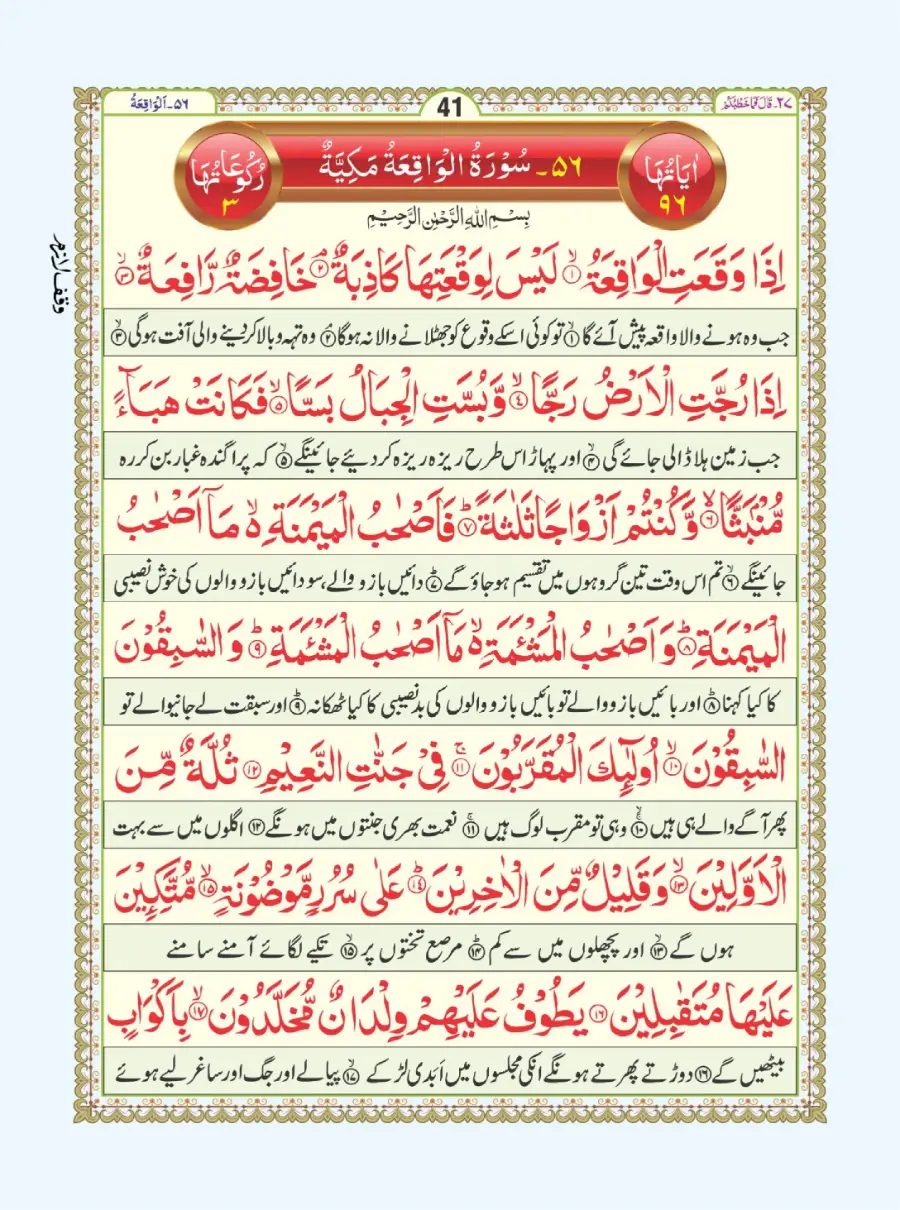 ٢٧۔ قَالَ فَمَا خَطْبُكُمْ
41
٥٦۔ اَلْوَاقِعَةُ
اٰيَاتُهَا ٩٦
٥٦۔ سُوْرَةُ الْوَاقِعَةُ مَكِيَّةٌ
رُكُوْعَاتُهَا ٣
بِسْمِ اللهِ الرَّحْمٰنِ الرَّحِيْمِ
وقف لازم
اِذَا وَقَعَتِ الْوَاقِعَةُ ۙ﴿١﴾ لَيْسَ لِوَقْعَتِهَا كَاذِبَةٌ ۘ﴿٢﴾ خَافِضَةٌ رَّافِعَةٌ ۙ﴿٣﴾
جب وہ ہونے والا واقعہ پیش آئے گا ﴿١﴾ تو کوئی اسکے وقوع کو جھٹلانے والا نہ ہوگا ﴿٢﴾ وہ تہہ و بالا کر دینے والی آفت ہوگی ﴿٣﴾
اِذَا رُجَّتِ الْاَرْضُ رَجًّا ۙ﴿٤﴾ وَّ بُسَّتِ الْجِبَالُ بَسًّا ۙ﴿٥﴾ فَكَانَتْ هَبَآءً
جب زمین ہلا ڈالی جائے گی ﴿٤﴾ اور پہاڑ اس طرح ریزہ ریزہ کر دیئے جائینگے ﴿٥﴾ کہ پراگندہ غبار بن کر رہ
مُّنْۢبَثًّا ۙ﴿٦﴾ وَّ كُنْتُمْ اَزْوَاجًا ثَلٰثَةً ؕ﴿٧﴾ فَاَصْحٰبُ الْمَيْمَنَةِ ۙ۬ مَاۤ اَصْحٰبُ
جائینگے ﴿٦﴾ تم اس وقت تین گروہوں میں تقسیم ہو جاؤ گے ﴿٧﴾ دائیں بازو والے، سو دائیں بازو والوں کی خوش نصیبی
الْمَيْمَنَةِ ؕ﴿٨﴾ وَ اَصْحٰبُ الْمَشْئَمَةِ ۙ۬ مَاۤ اَصْحٰبُ الْمَشْئَمَةِ ؕ﴿٩﴾ وَ السّٰبِقُوْنَ
کا کیا کہنا ﴿٨﴾ اور بائیں بازو والے تو بائیں بازو والوں کی بدنصیبی کا کیا ٹھکانہ ﴿٩﴾ اور سبقت لے جانیوالے تو
السّٰبِقُوْنَ ۙ﴿١٠﴾ اُولٰٓئِكَ الْمُقَرَّبُوْنَ ۚ﴿١١﴾ فِيْ جَنّٰتِ النَّعِيْمِ ﴿١٢﴾ ثُلَّةٌ مِّنَ
پھر آگے والے ہی ہیں ﴿١٠﴾ وہی تو مقرب لوگ ہیں ﴿١١﴾ نعمت بھری جنتوں میں ہونگے ﴿١٢﴾ اگلوں میں سے بہت
الْاَوَّلِيْنَ ۙ﴿١٣﴾ وَ قَلِيْلٌ مِّنَ الْاٰخِرِيْنَ ؕ﴿١٤﴾ عَلٰى سُرُرٍ مَّوْضُوْنَةٍ ۙ﴿١٥﴾ مُّتَّكِـِٕيْنَ
ہوں گے ﴿١٣﴾ اور پچھلوں میں سے کم ﴿١٤﴾ مرصع تختوں پر ﴿١٥﴾ تکیے لگائے آمنے سامنے
عَلَيْهَا مُتَقٰبِلِيْنَ ﴿١٦﴾ يَطُوْفُ عَلَيْهِمْ وِلْدَانٌ مُّخَلَّدُوْنَ ۙ﴿١٧﴾ بِاَكْوَابٍ
بیٹھیں گے ﴿١٦﴾ دوڑتے پھرتے ہونگے انکی مجلسوں میں اَبَدی لڑکے ﴿١٧﴾ پیالے اور جگ اور ساغر لیے ہوئے